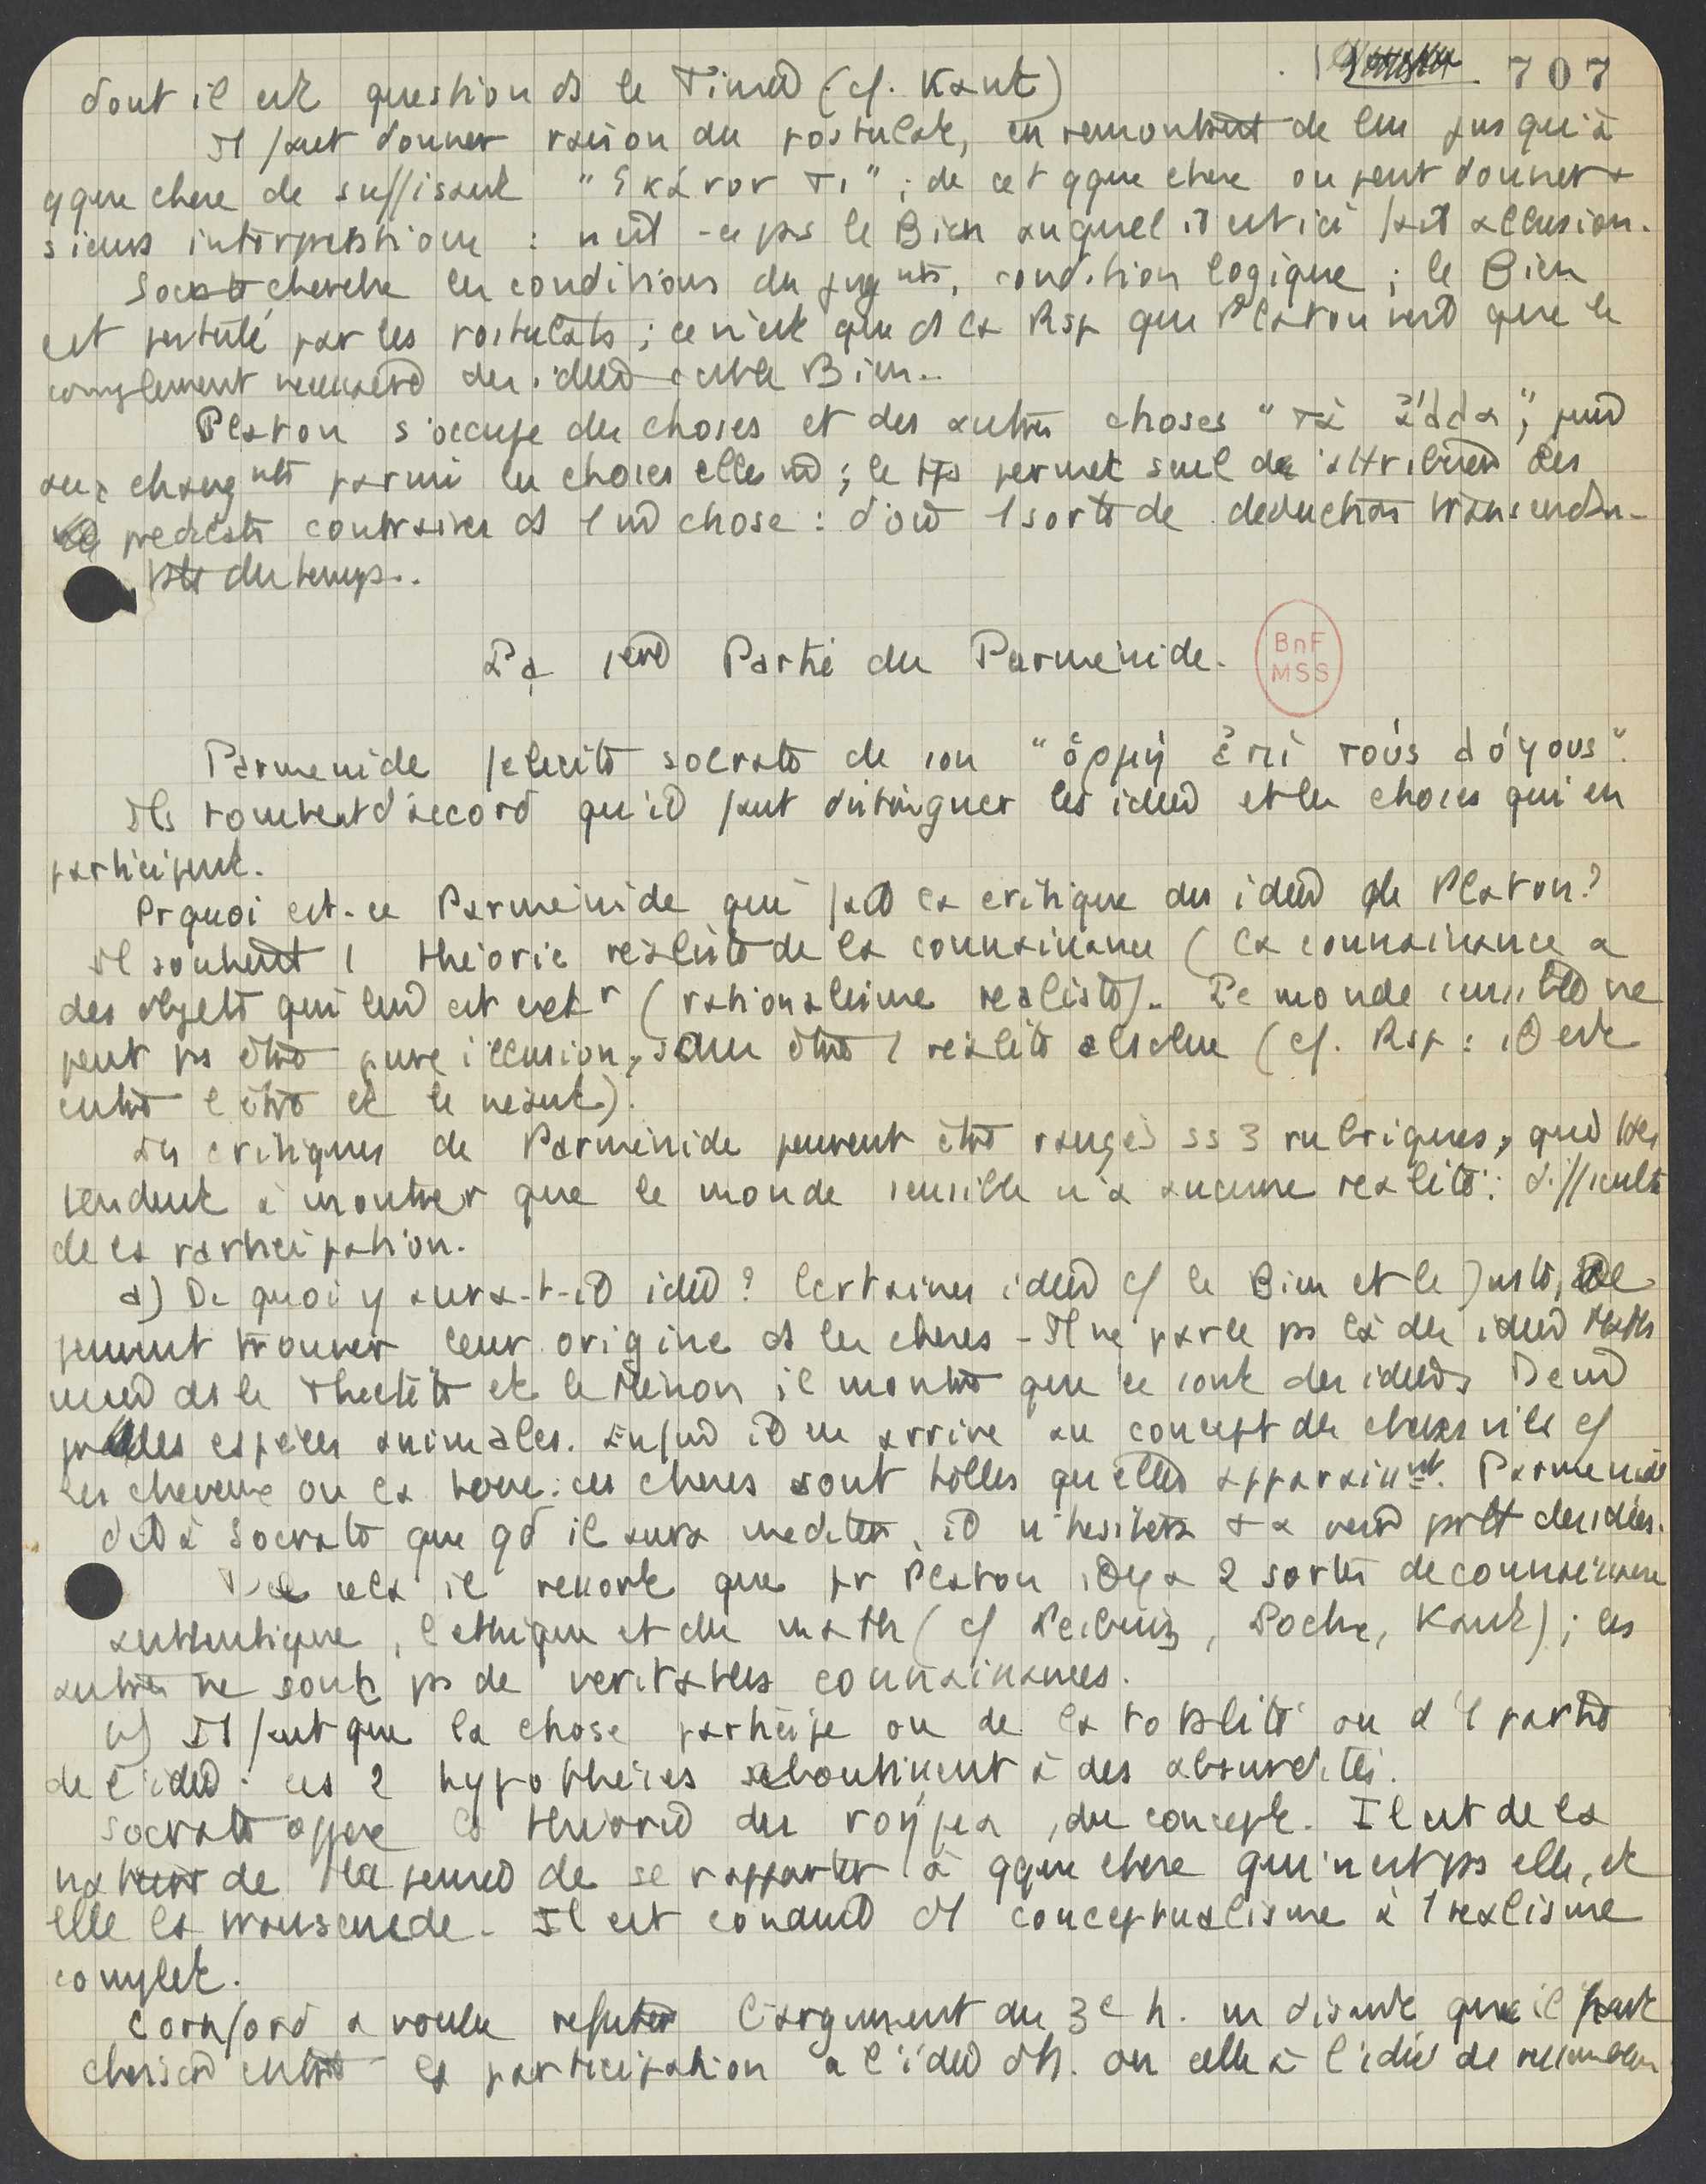 707
dont il est question ds le Timée (cf. Kant)
Il faut donner raison du postulat, en remontant de lui jusqu'à
qque chose de suffisant "ἱκανον τι" ; de cet qque chose on peut donner +
sieurs interprétations : n'est-ce pas le Bien auquel il est ici fait allusion.
Socrate cherche les conditions du jugnts, condition logique ; le Bien
est postulé par les postulats ; ce n'est que ds la Rép que Platon verra que le
complement necessaire des idées c'est le Bien.
Platon s'occupe des choses et des autres choses "τὰ ἄλλα",
aux changnts parmi les choses elles m ; le tps permet seul de attribuer des
predicats contraires ds 1 m chose : d'où 1 sorte de deduction transcendan-
tale du temps.
La 1ère Partie du Parménide.
BnF
MSS
Parmenide felicite Socrate de son "ὁρμὴ ἐπὶ τοὺς λόγους".
Ils tombent d'accord qu'il faut distinguer les idées et les choses qui en
participent.
Prquoi est-ce Parménide qui fait la critique des idées de Platon ?
Il soutient 1 théorie réaliste de la connaissance (la connaissance a
des objets qui lui est extr (rationalisme realiste). Le monde sensible ne
peut ps être pure illusion, sans être 1 réalité absolue (cf. Rép : il est
entre l'être et le néant).
Les critiques de Parménide peuvent être rangés ss 3 rubriques, qui ttes
tendent à montrer que le monde sensible n'a aucune réalité : difficulté
de la participation.
a) De quoi y aura-t-il idée ? Certaines idées cf le Bien et le Juste, ne
peuvent trouver leur origine ds les choses - Il ne parle ps là des idées Maths
mais ds le Theétète et le Ménon il montre que ce sont des idées. De m
pr les espèces animales. Enfin il en arrive au concept des choses viles cf
les cheveux ou la boue : ces choses sont telles qu'elles apparaissnt. Parmenide
dit à Socrate que qd il aura medité, il n'hesitera + à verra prtt des idées.
De cela il ressort que pr Platon il y a 2 sortes de connaissance
authentique, l'ethique et les math (cf Leibniz, Locke, Kant) ; les
autres ne sont ps de veritables connaissances.
b) Il faut que la chose participe ou de la totalité ou d'1 partie
de l'idée : ces 2 hypothèses aboutissent à des absurdités.
Socrate oppose la théorie du νοημα, du concept. Il est de la
nature de la pensée de se rapporter à qque chose qui n'est ps elle, et
elle la transcende. Il est conduit d'1 conceptualisme à 1 realisme
complet.
Cornford a voulu refuter l'argument du 3e h. en disant que il faut
choisir entre la participation a l'idée d'h. ou celle à l'idée de